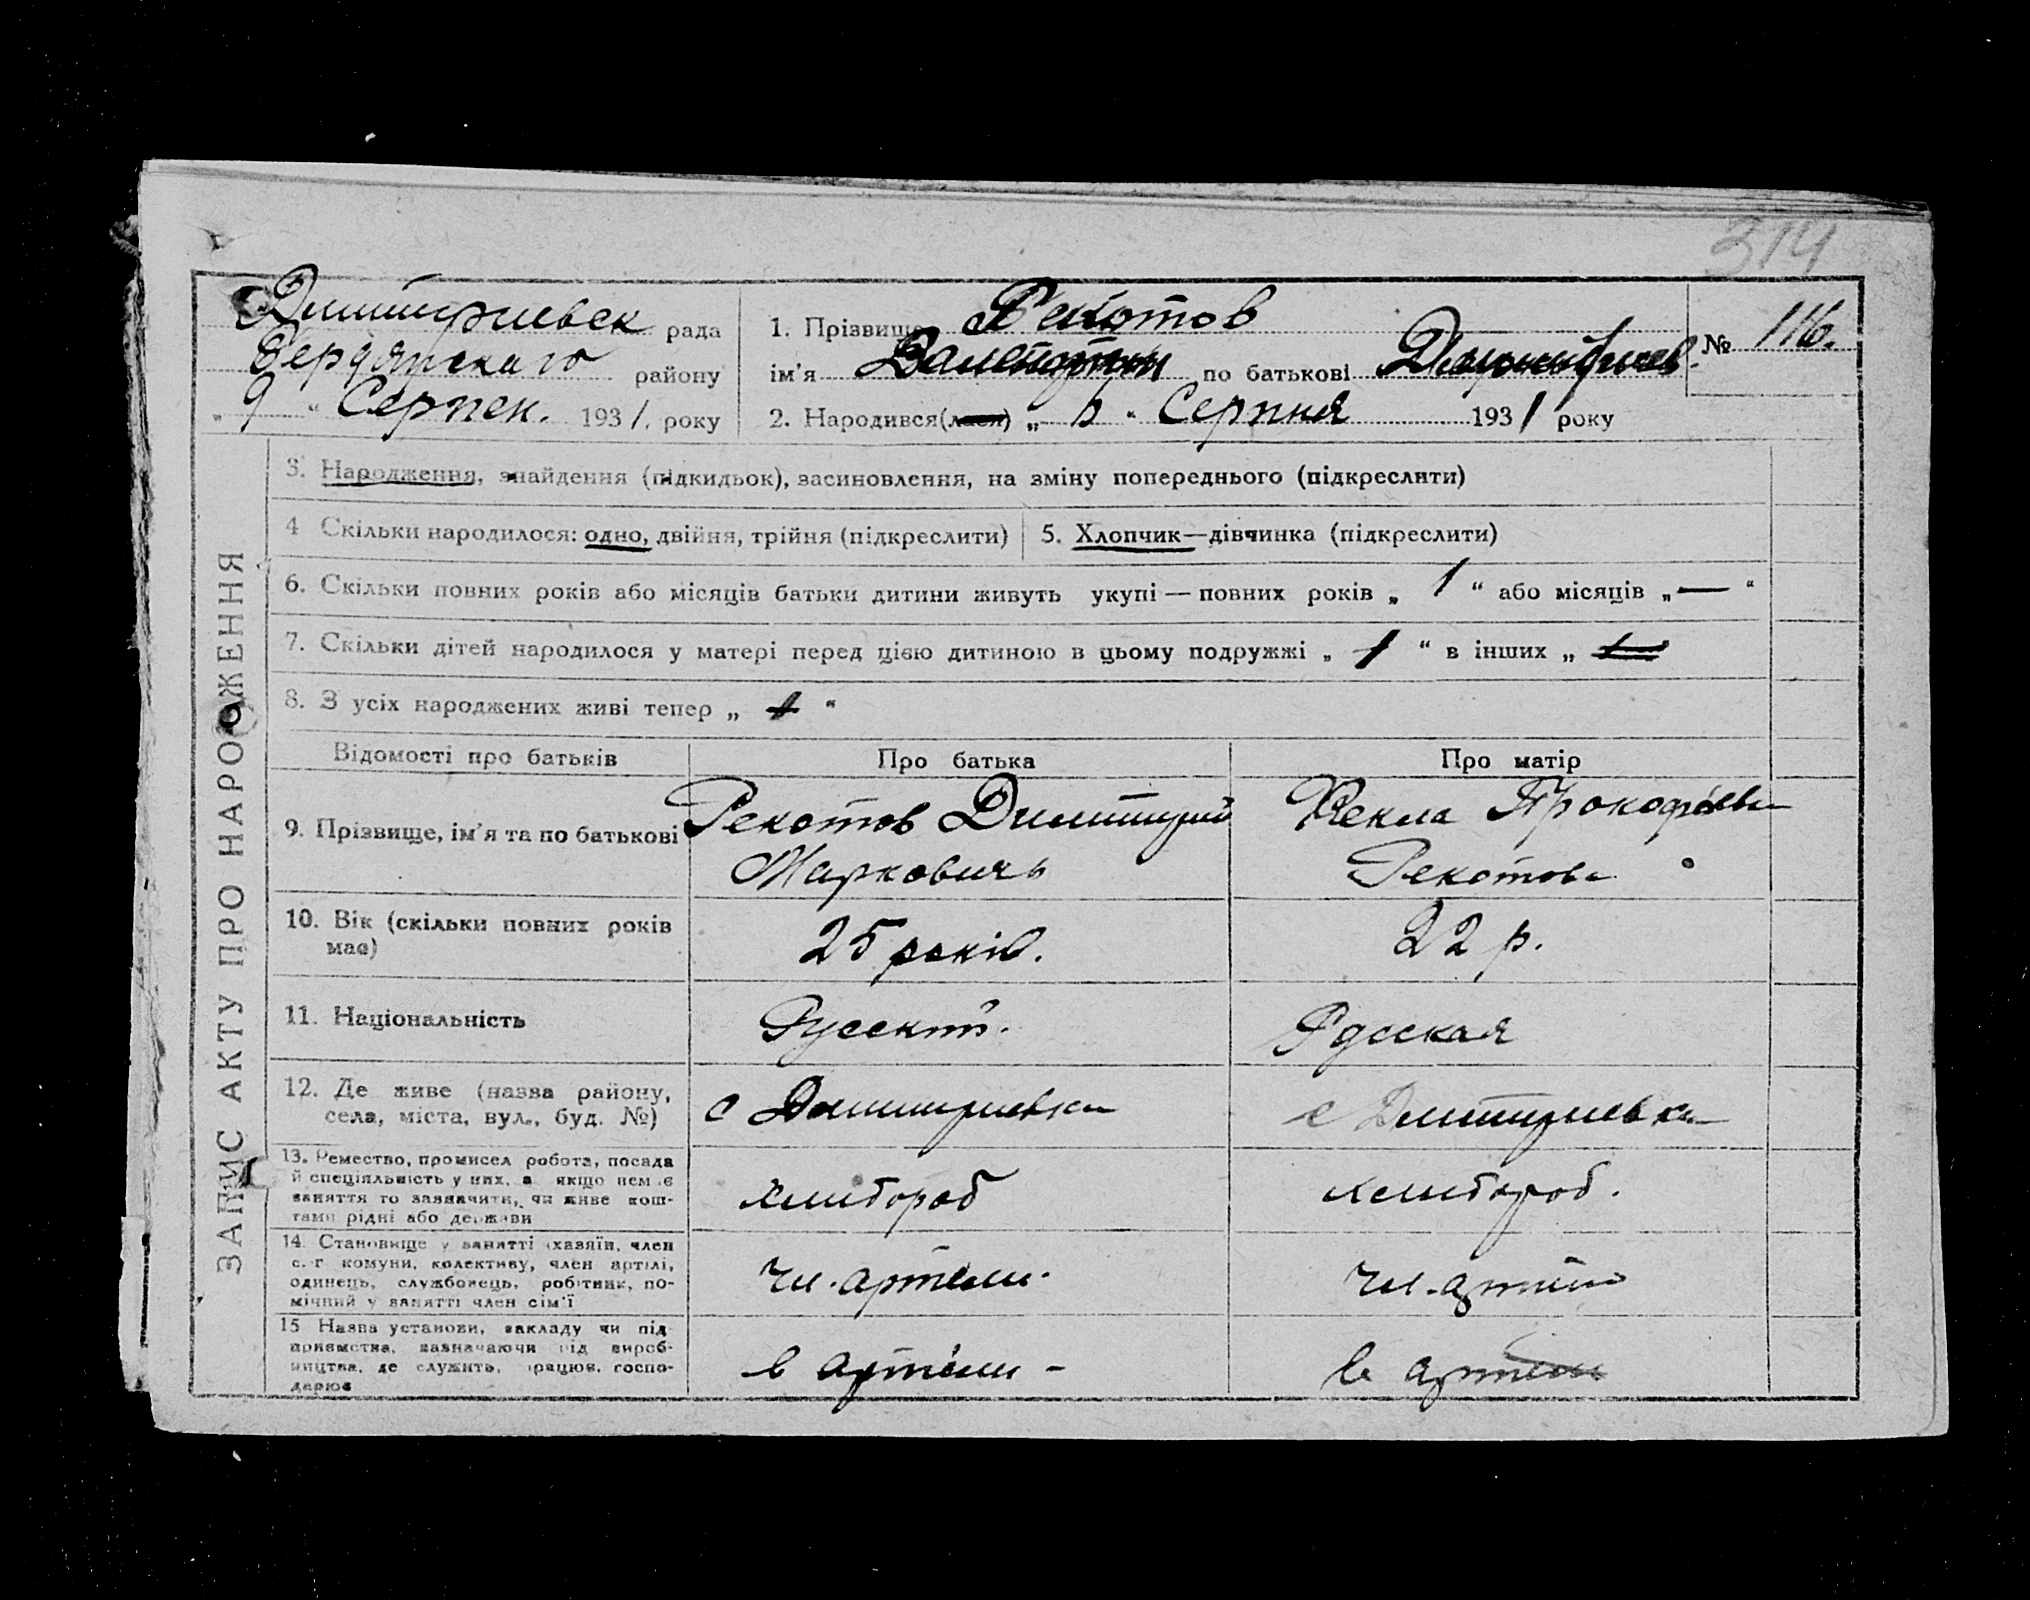 314
Димитриевск рада
Бердянского району
„ 9 “ Серпен. 1931. року
1. Прізвище Рекотов
ім’я Валентин по батькові
№ 116.
2. Народився(лася) „ “ Серпня 1931 року
ЗАПИС АКТУ ПРО НАРОДЖЕННЯ
3. Народження, знайдення (підкидьок), засиновлення, на зміну попереднього (підкреслити)
4 Скільки народилося: одно, двійня, трійня (підкреслити)
5. Хлопчик—дівчинка (підкреслити)
6. Скільки повних років або місяців батьки дитини живуть укупі — повних років „ 1 “ або місяців „ — “
7. Скільки дітей народилося у матері перед цією дитиною в цьому подружжі „ 1 “ в інших „
8. З усіх народжених живі тепер „ 1 “
Відомості про батьків
Про батька
Про матір
9. Прізвище, ім’я та по батькові
Рекотов Димитрий
Марковичь
Фекла Прокофьева
Рекотова
10. Вік (скільки повних років
має)
25 років.
22 р.
11. Національність
Русский.
Русская
12. Де живе (назва району,
села, міста, вул., буд. №)
с Димитриевка
с Дмитриевка
13. Ремество, промисел робота, посада
й спеціяльність у них, а якщо нем є
заняття то зазначити, чи живе кош-
тами рідні або держави
хлибороб
хлибороб.
14. Становище у занятті (хазяїн, член
с.-г комуни, колективу, член артілі,
одинець, службовець, робітник, по-
мічний у занятті член сім’ї
чл. артели.
чл. артели
15 Назва установи, закладу чи під-
приємства, зазначаючи рід вироб-
ництва, де служить, працює, госпо-
дарює
в артели -
в артели